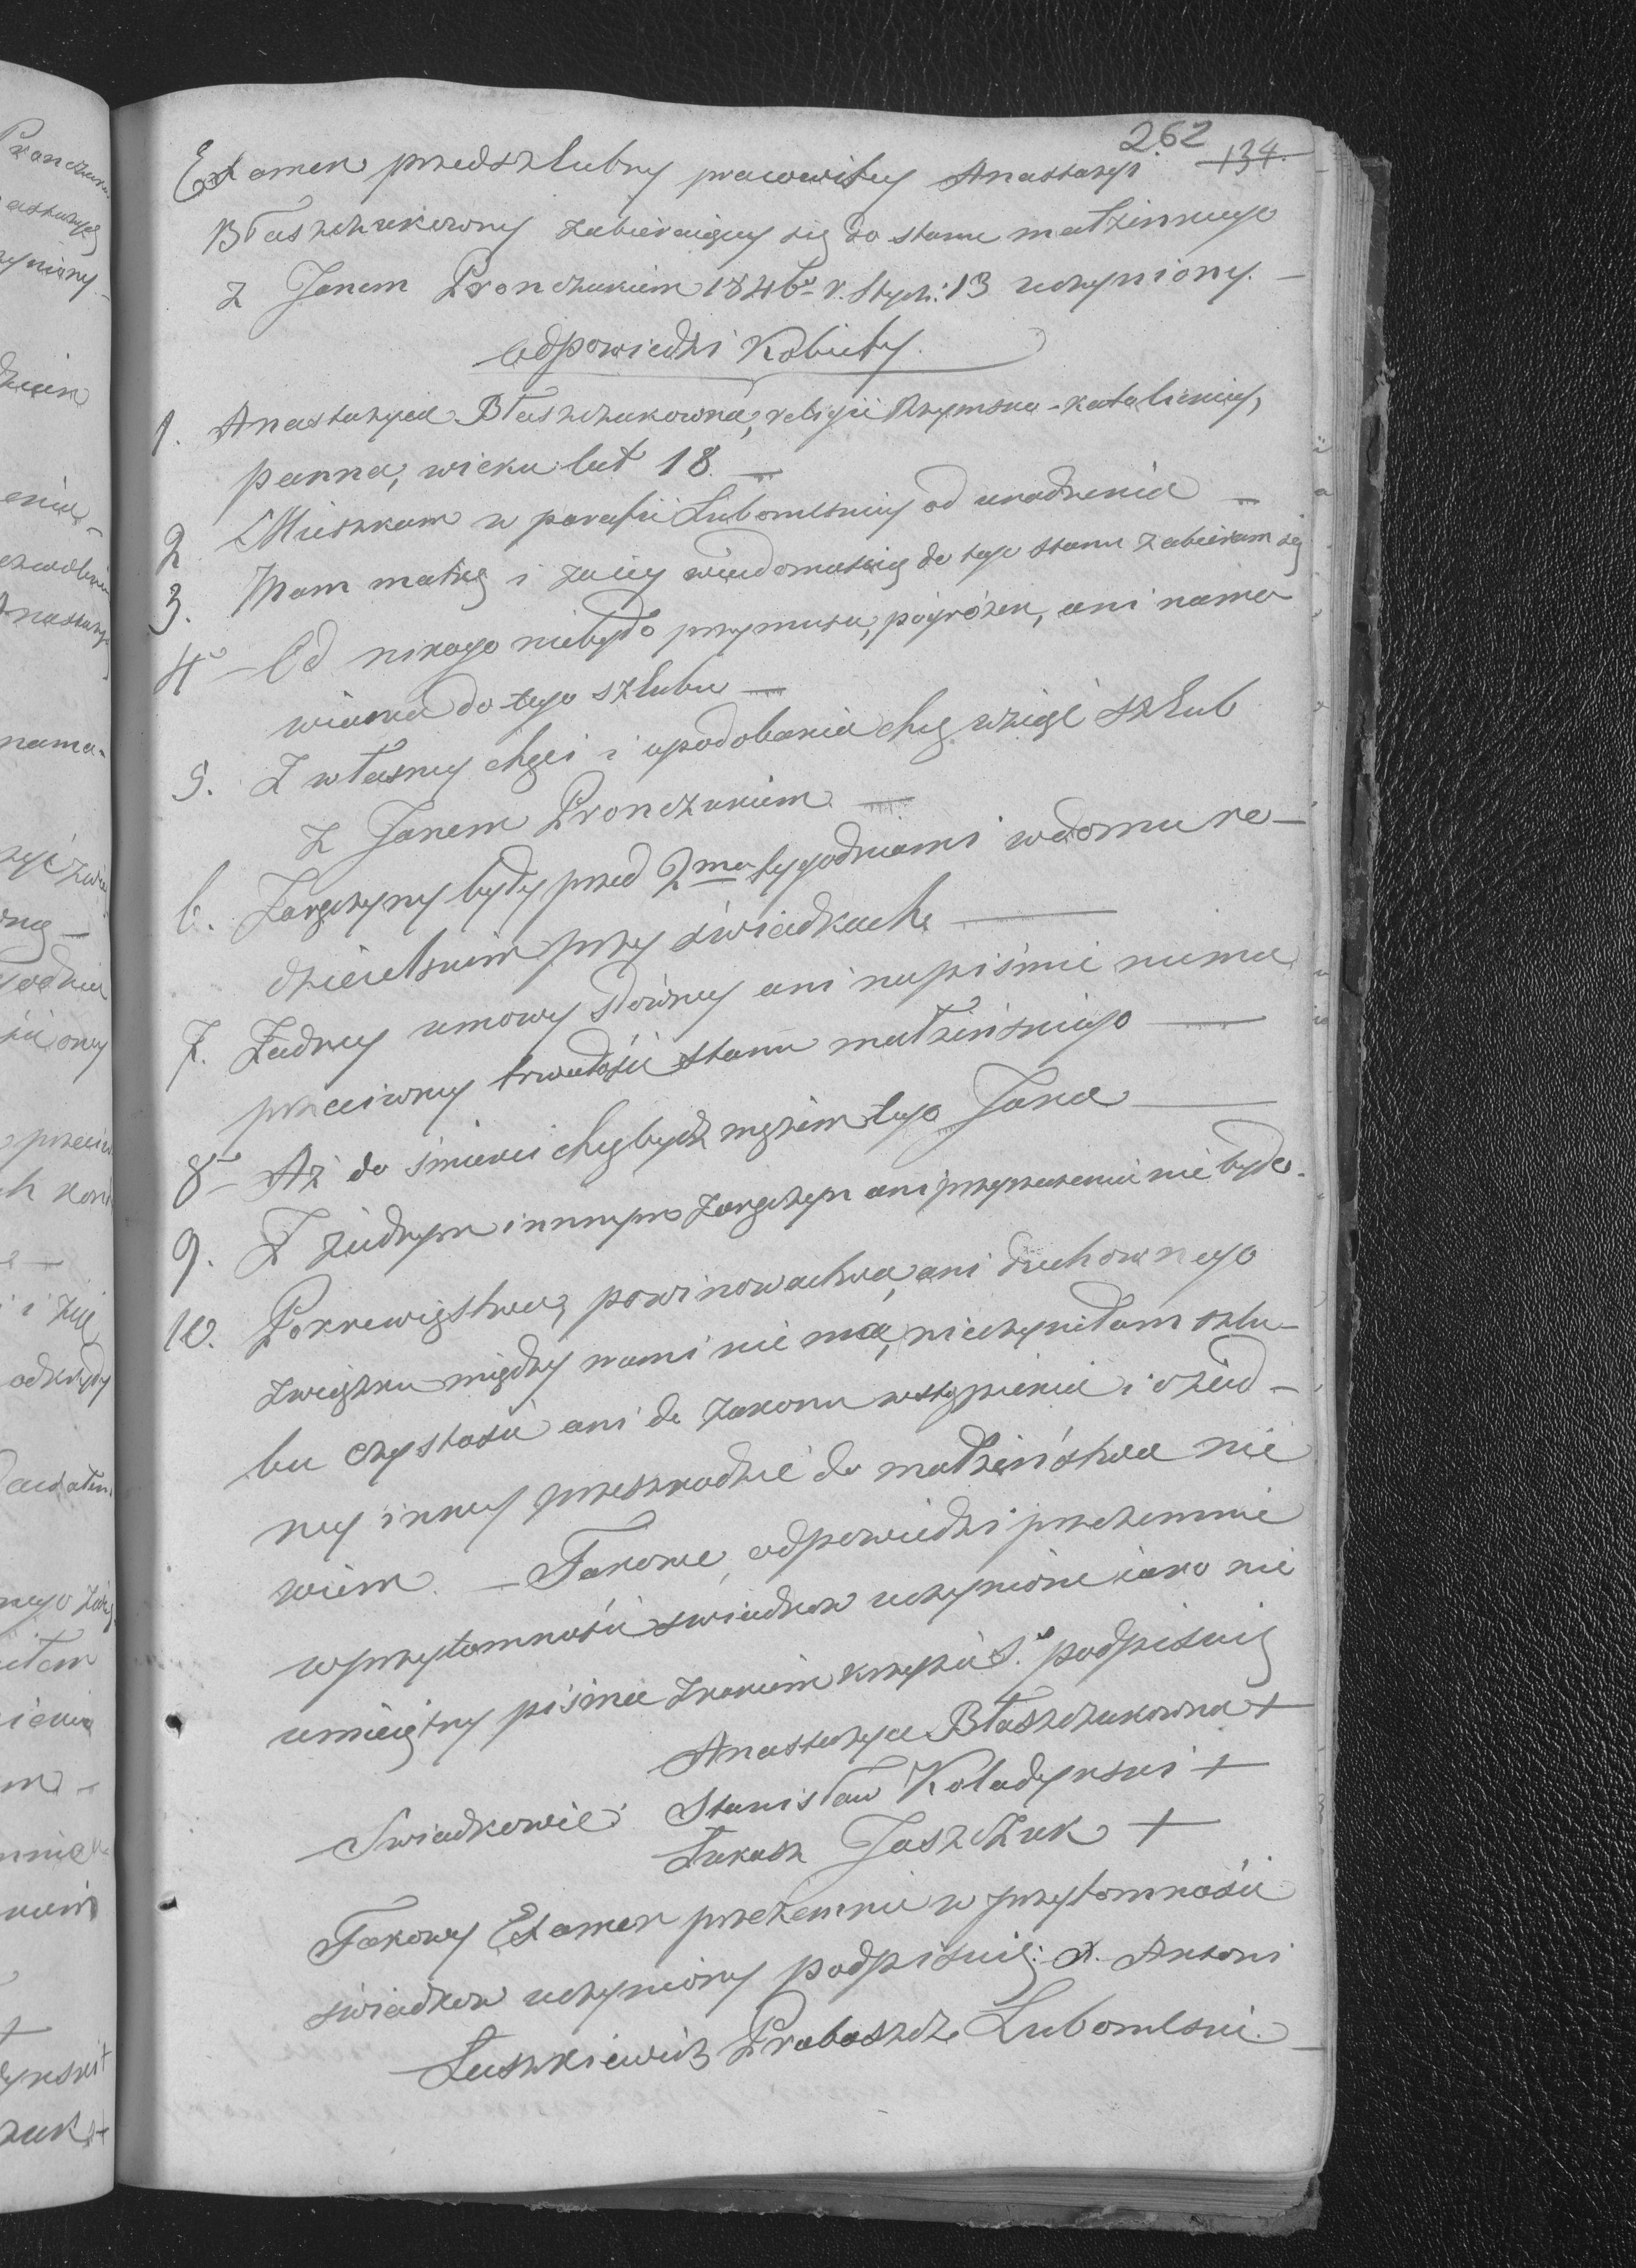 262
134.
Examen przedszlubny pracowitey Anastazyi
Błaszczukowny zabieraiącey się do stanu małżennego
z Janem Pronczukiem 1846º r. Stycz: 13 uczyniony. —
Odpowiedzi Kobiety.
1. Anastazyia Błaszczukowna, religii Rzymsko-katolickiey,
panna, wieku lat 18. —
2 Mieszkam w parafii Lubomlskiey od urodzenia —
3. Mam matkę i za iey wiadomością do tego stanu zabieram się
4º — Od nikogo niebyło przymusu, pogrózek, ani namo
wienia do tego szlubu —
5. Z własney chęci i upodobania chcę wziąść szlub
z Janem Pronczukiem. —
6. Zaręczyny były przed 2ma tygodniami w domu ro-
dzicielskim przy świadkach —
7. Żadney umowy słówney ani napiśmie niema
przeciwney trwałości stanu małżeńskiego —
8º — Aż do śmierci chcę bydź mężem tego Jana —
9. Z żadnym innym zaręczyn ani przyrzeczenia nie było.
10. Pokrewięstwa, powinowactwa, ani duchownego
związku między nami nie ma, nieczyniłam szlu-
bu czystości ani do zakonu wstąpienia i o żad-
ney inney przeszkodzie do małżeństwa nie
wiem. — Takowe odpowiedzi przezemnie
w przytomności swiadkow uczynione iako nie
umieiętny pisma znakiem krzyża S. podpisuię
Anastazya Błaszczukowna +
Swiadkowie: Stanisław Koladynski +
Łukasz Jaszczuk +
Takowy Examen przezemnie w przytomności
świadkow uczyniony podpisuię: X. Antoni
Łuszkiewicz Proboszcz Lubomlski. —